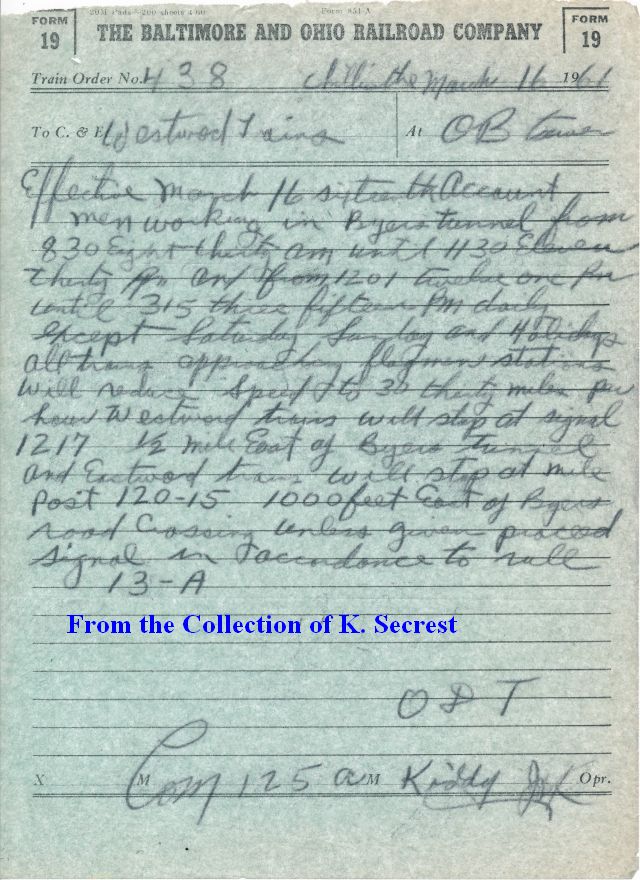 20M Pads—200 sheets 4-60 Form 851-A
FORM 19
THE BALTIMORE AND OHIO RAILROAD COMPANY
FORM 19
Train Order No. 438 Chillicothe March 16 1961
To C. & E. Westword Trains At OB tower
Effective March 16 sixteenth Account
men working in Byers tunnel from
830 Eight thirty am until 1130 Eleven
thirty Am and from 1201 twelve one Pm
until 315 three fifteen PM daily
except Saturday Sunday and Holidays
all trains approaching flagmen stations
will reduce speed to 30 thirty miles per
hour Westword trains will stop at signal
1217 1/2 mile East of Byers tunnel
and Eastword trains will stop at mile
Post 120-15 1000 feet East of Byers
road Crossing unless given proceed
signal in accordance to rule
13-A
From the Collection of K. Secrest
ODT
X M Com 125 a M Kiddy Opr.